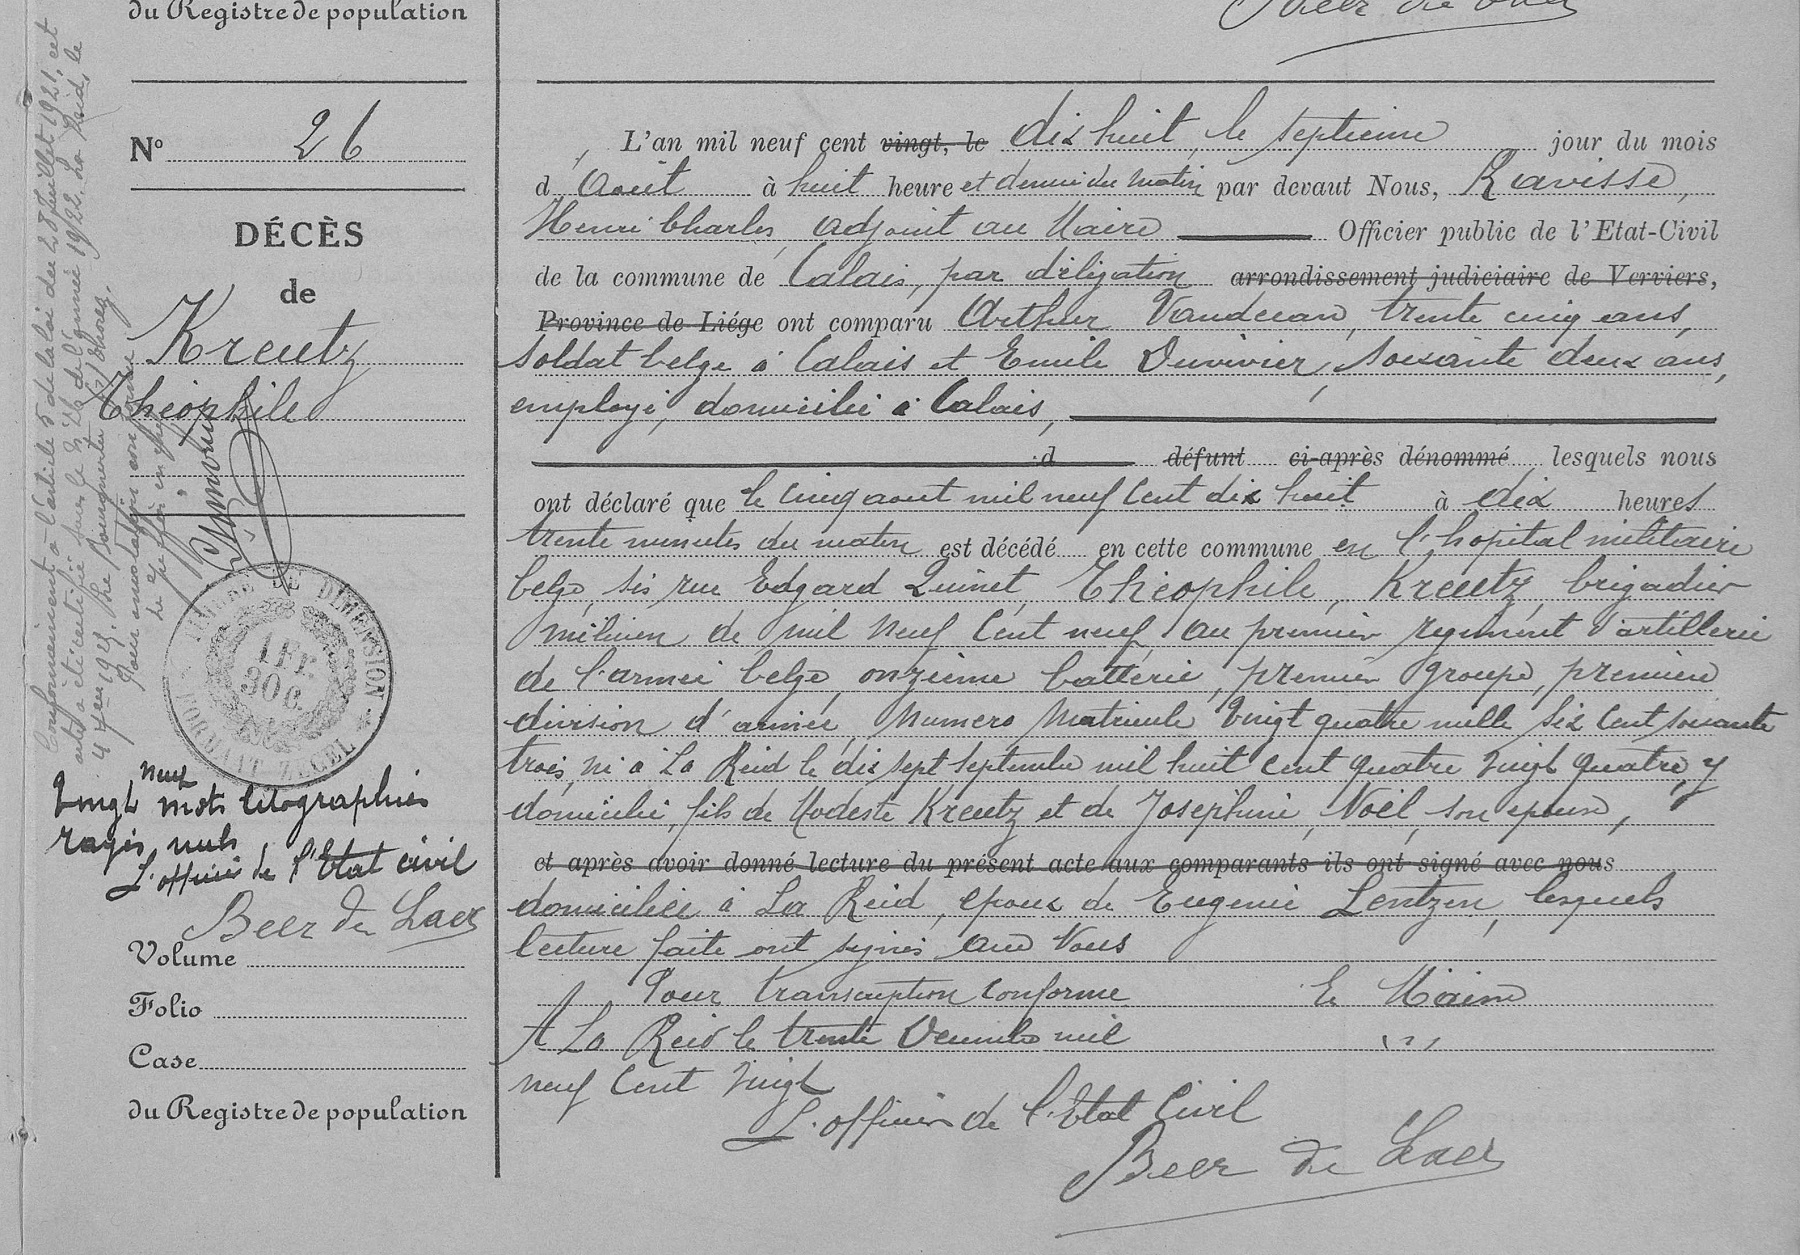 du Registre de population
Beer de Laer
Nº 26
DÉCÈS
de
Kreutz
Théophile
Conformément à l'article 5 de la loi du 28 juillet 1921, cet
acte a été centifié sous le Nº de l'année 1922. La Reid, le
4 1929. Le Bourgmestre (s)
Pour annotation conforme
Le Greffier
TIMBRE DE DIMENSION
FORMAAT ZEGEL
1 FR.
30 C.
neuf
Vingt mots litographiés
rayés nuls
L'officier de l'Etat civil
Beer de Laer
Volume
Folio
Case
du Registre de population
L'an mil neuf cent vingt, le dix huit, le septième jour du mois
d Août à huit heure et demie du matin par devant Nous, Ravisse,
Henri Charles, adjoint au Maire Officier public de l'Etat-Civil
de la commune de Calais, par délégation arrondissement judiciaire de Verviers,
Province de Liége ont comparu Arthur trente cinq ans,
soldat belge à Calais et Emile Duvivier, soixante deux ans,
employé, domicilié à Calais,
d défunt ci-après dénommé lesquels nous
ont déclaré que le cinq aout mil neuf cent dix huit à dix heures
trente minutes du matin est décédé en cette commune en l'hopital militaire
belge, sis rue Edgard Quinet, Théophile, Kreutz, brigadier
milicien de mil neuf cent neuf, au premier régiment d'artillerie
de l'armée belge, onzième batterie, premier groupe, première
division d'armée, numéro matricule vingt quatre mille six cent soixante
trois, né à La Reid le dix sept septembre mil huit cent quatre vingt quatre, y
domicilié, fils de Modeste Kreutz et de Joséphine, Noël, son épouse,
et après avoir donné lecture du présent acte aux comparants ils ont signé avec nous
domiciliée à La Reid, époux de Eugenie Lentzen, lesquels
lecture faite ont signés avec Nous
Pour transcription conforme Le Maire
A La Reid le trente Décembre mil
neuf cent vingt
L'officier de l'Etat Civil
Beer de Laer